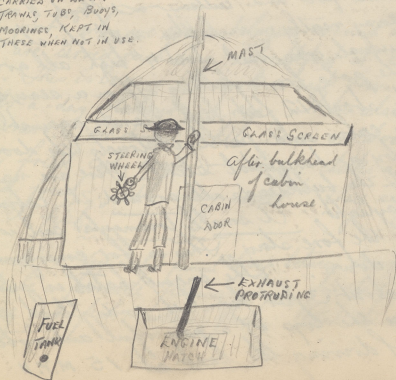 TRAWLS, TUBS, BUOYS,
MOORINGS, KEPT IN
THESE WHEN NOT IN USE.
MAST
GLASS S
GLASS SCREEN
STEERING
WHEEL
after bulkhead
of cabin
house
CABIN
DOOR
EXHAUST
PROTRUDING
FUEL
TANK
ENGINE
HATCH